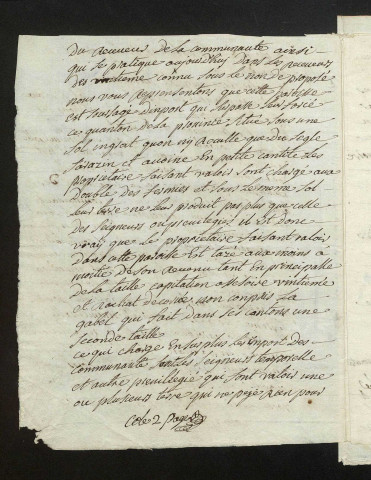 du Receveur de la communauté ainsi
qui se pratique aujourd'huy dans les
des vintieme connu sous le nom de preposé
nous vous Representontons que cette paroisse
est surchargé d'inport qui surpasse les forcé
ce quanton de la province Situé sous une
sol ingrat quon ny Reculte que du segle
Sarazin et avoine En petite cantité Les
propietaire faisant valoir sont chargé aux
double des fermies et sous le meme sol
leur terre ne leur produit pas plus que celle
des Seigneurs ou previlegié il Et donc
vray que le propietaire faisant valoir
dans cette paroisse Et taxé aux moins a
moitié de son Revenu tant En principalle
de la taille capitation vintieme
et Rachat de corvé non conpris La
gabel qui fait dans ses cantons une
seconde taille
ce qui charge En sus plus les inport des
communauté sont les Seigneurs temporelle
et autre previllegié qui font valoir une
ou plusieurs terre qui ne peje Rien pour
Coté 2 page